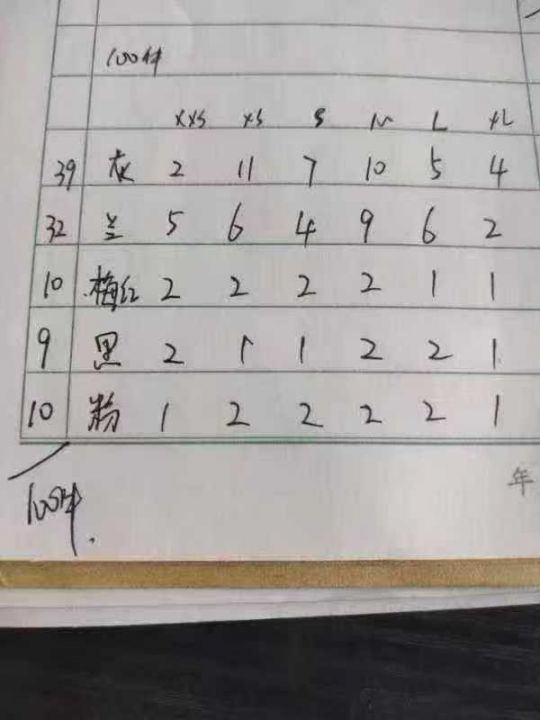 100件
XXS XS S M L XL
39 灰 2 11 7 10 5 4
32 兰 5 6 4 9 6 2
10 梅红 2 2 2 2 1 1
9 黑 2 1 1 2 2 1
10 粉 1 2 2 2 2 1
年
100件.